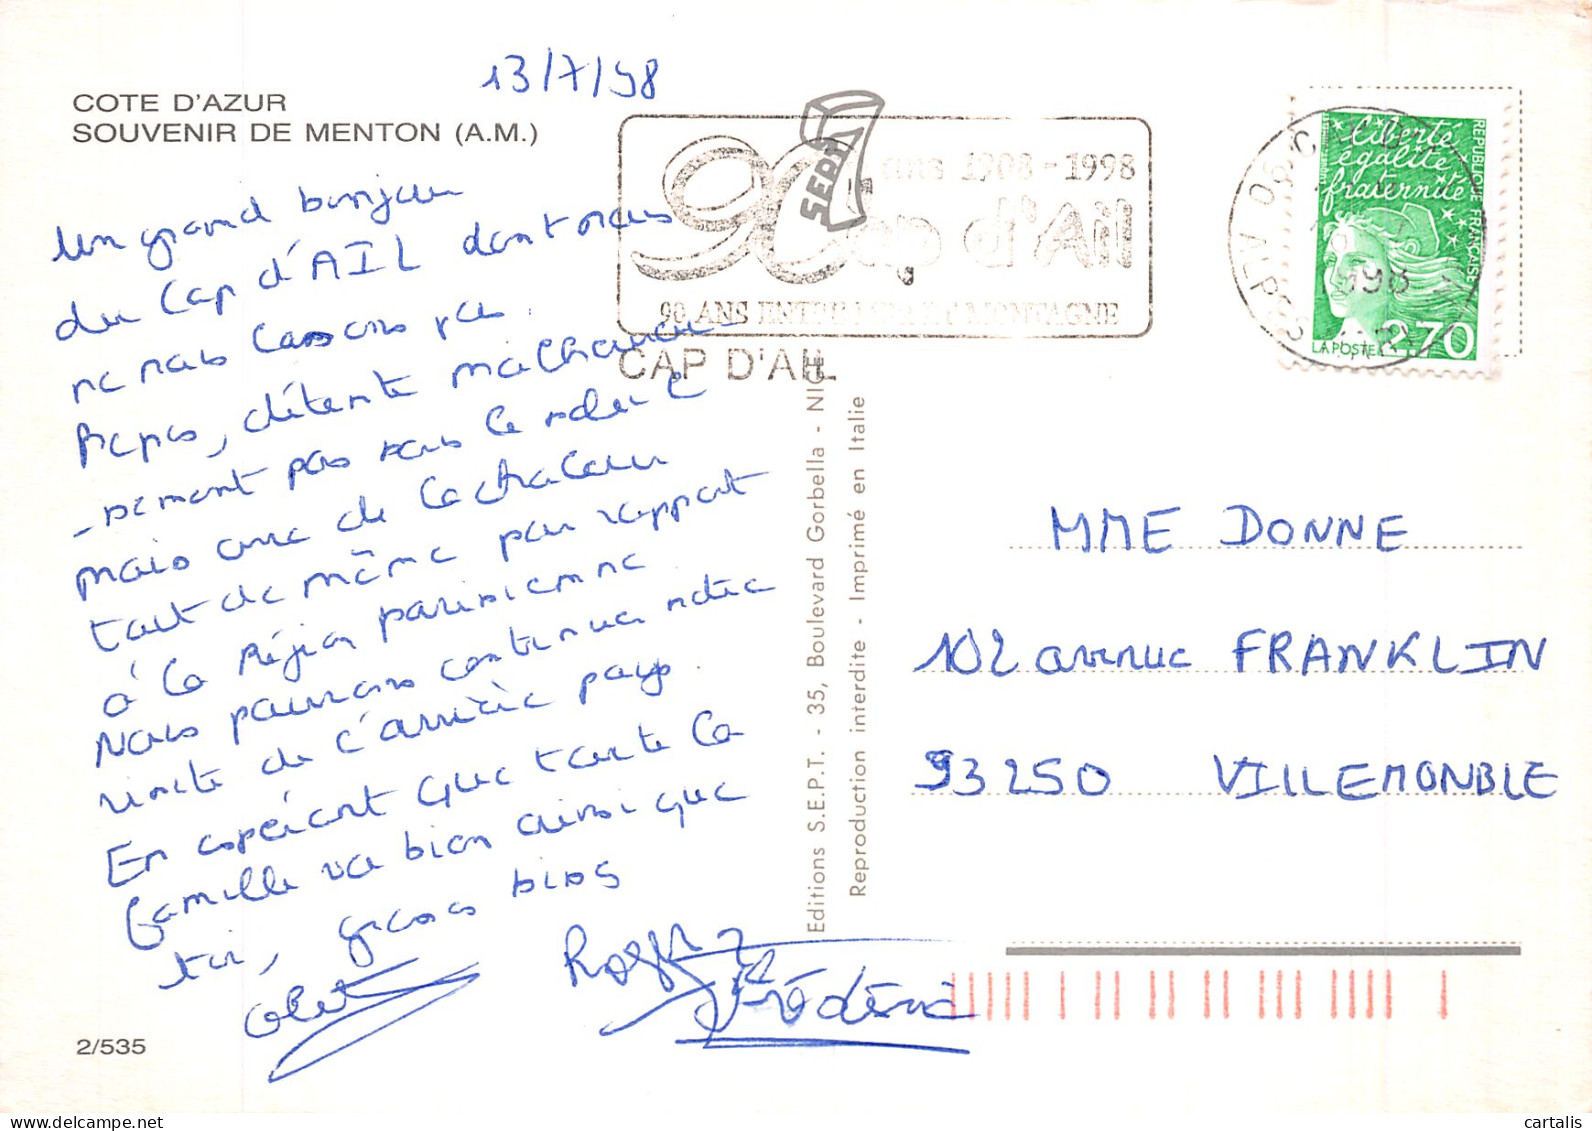 13/7/98
COTE D'AZUR
SOUVENIR DE MENTON (A.M.)
Un grand bonjour
du Cap d'AIL dont nous
ne nous lassons pas.
Repos, détente malheureu-
-sement pas sous le soleil
mais avec de la chaleur
tout de même par rapport
à la Région parisienne.
Nous pourrons continuer notre
visite de l'arrière pays.
En espérant que toute la
famille va bien ainsi que
toi, grosses bises
Roger
Frédéric
2/535
90 ans 1908-1998
SEPT
Cap d'Ail
90 ANS ENTRE MER ET MONTAGNE
CAP D'AIL
06 ALPES
REPUBLIQUE FRANÇAISE
liberté
égalité
fraternité
LA POSTE 2,70
Editions S.E.P.T. - 35, Boulevard Gorbella - NICE
Reproduction interdite - Imprimé en Italie
MME DONNE
102 avenue FRANKLIN
93250 VILLEMONBLE
cartalis
www.delcampe.net